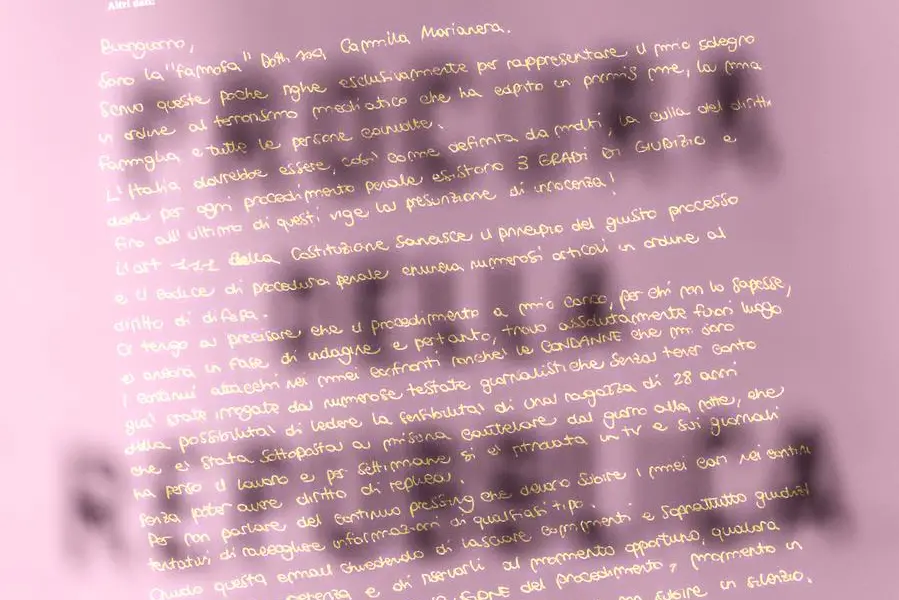 Altri dati:
Buongiorno,
sono la "famosa" Dott.ssa Camilla Marianera.
Scrivo queste poche righe esclusivamente per rappresentare il mio sdegno
in ordine al terrorismo mediatico che ha colpito in primis me, la mia
famiglia e tutte le persone coinvolte.
L'Italia dovrebbe essere, così come definita da molti, la culla del diritto
dove per ogni procedimento penale esistono 3 GRADI DI GIUDIZIO e
fino all'ultimo di questi vige la presunzione di innocenza!
L'art 111 della Costituzione sancisce il principio del giusto processo
e il codice di procedura penale enumera numerosi articoli in ordine al
diritto di difesa.
Ci tengo a precisare che il procedimento a mio carico, per chi non lo sapesse,
è ancora in fase di indagine e pertanto, trovo assolutamente fuori luogo
i continui attacchi nei miei confronti nonché le CONDANNE che mi sono
già state irrogate da numerose testate giornalistiche senza tener conto
della possibilità di ledere la sensibilità di una ragazza di 28 anni
che è stata sottoposta a misura cautelare dal giorno alla notte, che
ha perso il lavoro e per settimane si è ritrovata in tv e sui giornali
senza poter avere diritto di replica.
Per non parlare del continuo pressing che devono subire i miei cari nei continui
tentativi di raccogliere informazioni di qualsiasi tipo.
Chiudo questa email chiedendo di lasciare commenti e soprattutto giudizi
e di riservarli al momento opportuno, qualora
del procedimento, momento in
subire in silenzio.